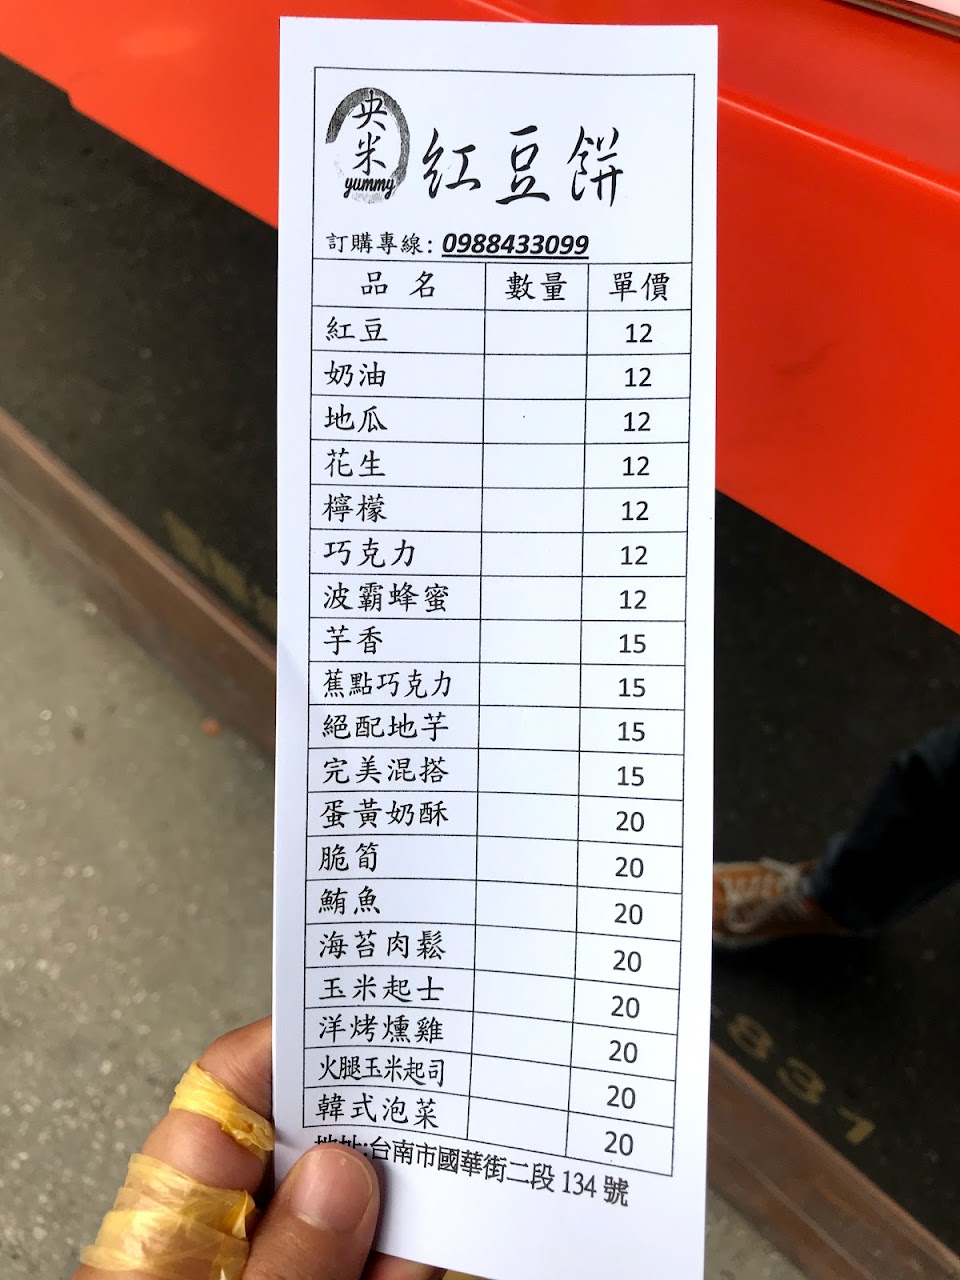 央米
yummy
紅豆餅
訂購專線: 0988433099
品名 數量 單價
紅豆 12
奶油 12
地瓜 12
花生 12
檸檬 12
巧克力 12
波霸蜂蜜 12
芋香 15
蕉點巧克力 15
絕配地芋 15
完美混搭 15
蛋黃奶酥 20
脆筍 20
鮪魚 20
海苔肉鬆 20
玉米起士 20
洋烤燻雞 20
火腿玉米起司 20
韓式泡菜 20
地址:台南市國華街二段 134 號